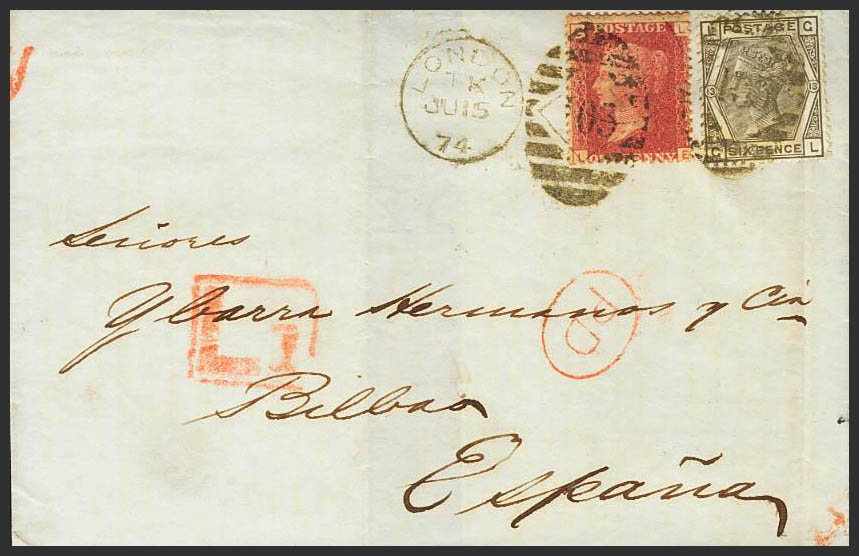 LONDON
TK
JU 15
74
E L
POSTAGE
ONE PENNY
L E
L POSTAGE G
13 13
G SIX PENCE L
Señores
Ybarra Hermanos y Cia
L1
PD
Bilbao
España